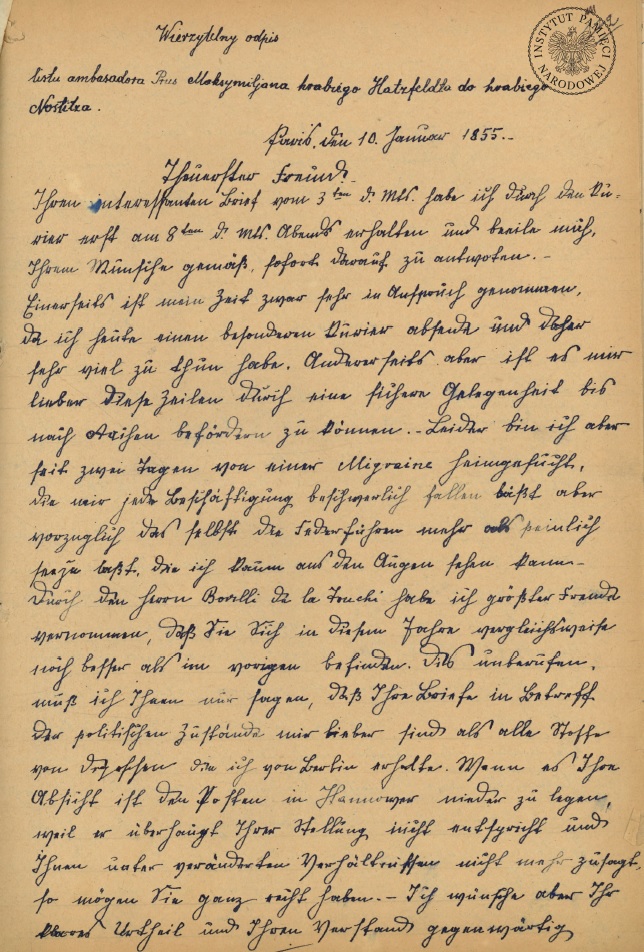 INSTYTUT PAMIĘCI NARODOWEJ
Wierzytelny odpis
listu ambasadora Prus Maksymiljana hrabiego Hatzfeldta do hrabiego
Nostitza.
Paris, den 10. Januar 1855.-
Theuerster Freund.
Ihren interessanten Brief vom 3ten d. Mts. habe ich durch den Ku-
rier erst am 8ten d. Mts. Abends erhalten und beeile mich,
Ihrem Wunsche gemäß, sofort darauf zu antwoten. -
Einerseits ist mein Zeit zwar sehr in Anspruch genommen,
da ich heute einen besonderen Kurier absende und daher
sehr viel zu thun habe. Andererseits aber ist es mir
lieber diese Zeilen durch eine sichere Gelegenheit bis
nach Aachen befördern zu können. - Leider bin ich aber
seit zwei Tagen von einer Migraine heimgesucht,
die mir jede Beschäftigung beschwerlich fallen läßt aber
vorzüglich das selbst die Feder führen mehr als peinlich
laßt, die ich kaum aus den Augen sehen kann -
Durch den Herrn de la habe ich größter Freude
vernommen, daß Sie Sich in diesem Jahre vergleichsweise
noch besser als im vorigen befinden. Das unberufen,
muß ich Ihnen nur sagen, daß Ihre Briefe in Betreff
der politischen Zustände mir lieber sind als alle Stoffe
von die ich von Berlin erhalte. Wenn es Ihre
Absicht ist den Posten in Hannower nieder zu legen,
weil er überhaupt Ihrer Stellung nicht entspricht und
Ihnen unter veränderten Verhältnissen nicht mehr zusagt,
so mögen Sie ganz recht haben. - Ich wünsche aber Ihr
klares Urtheil und Ihren Verstand gegenwärtig